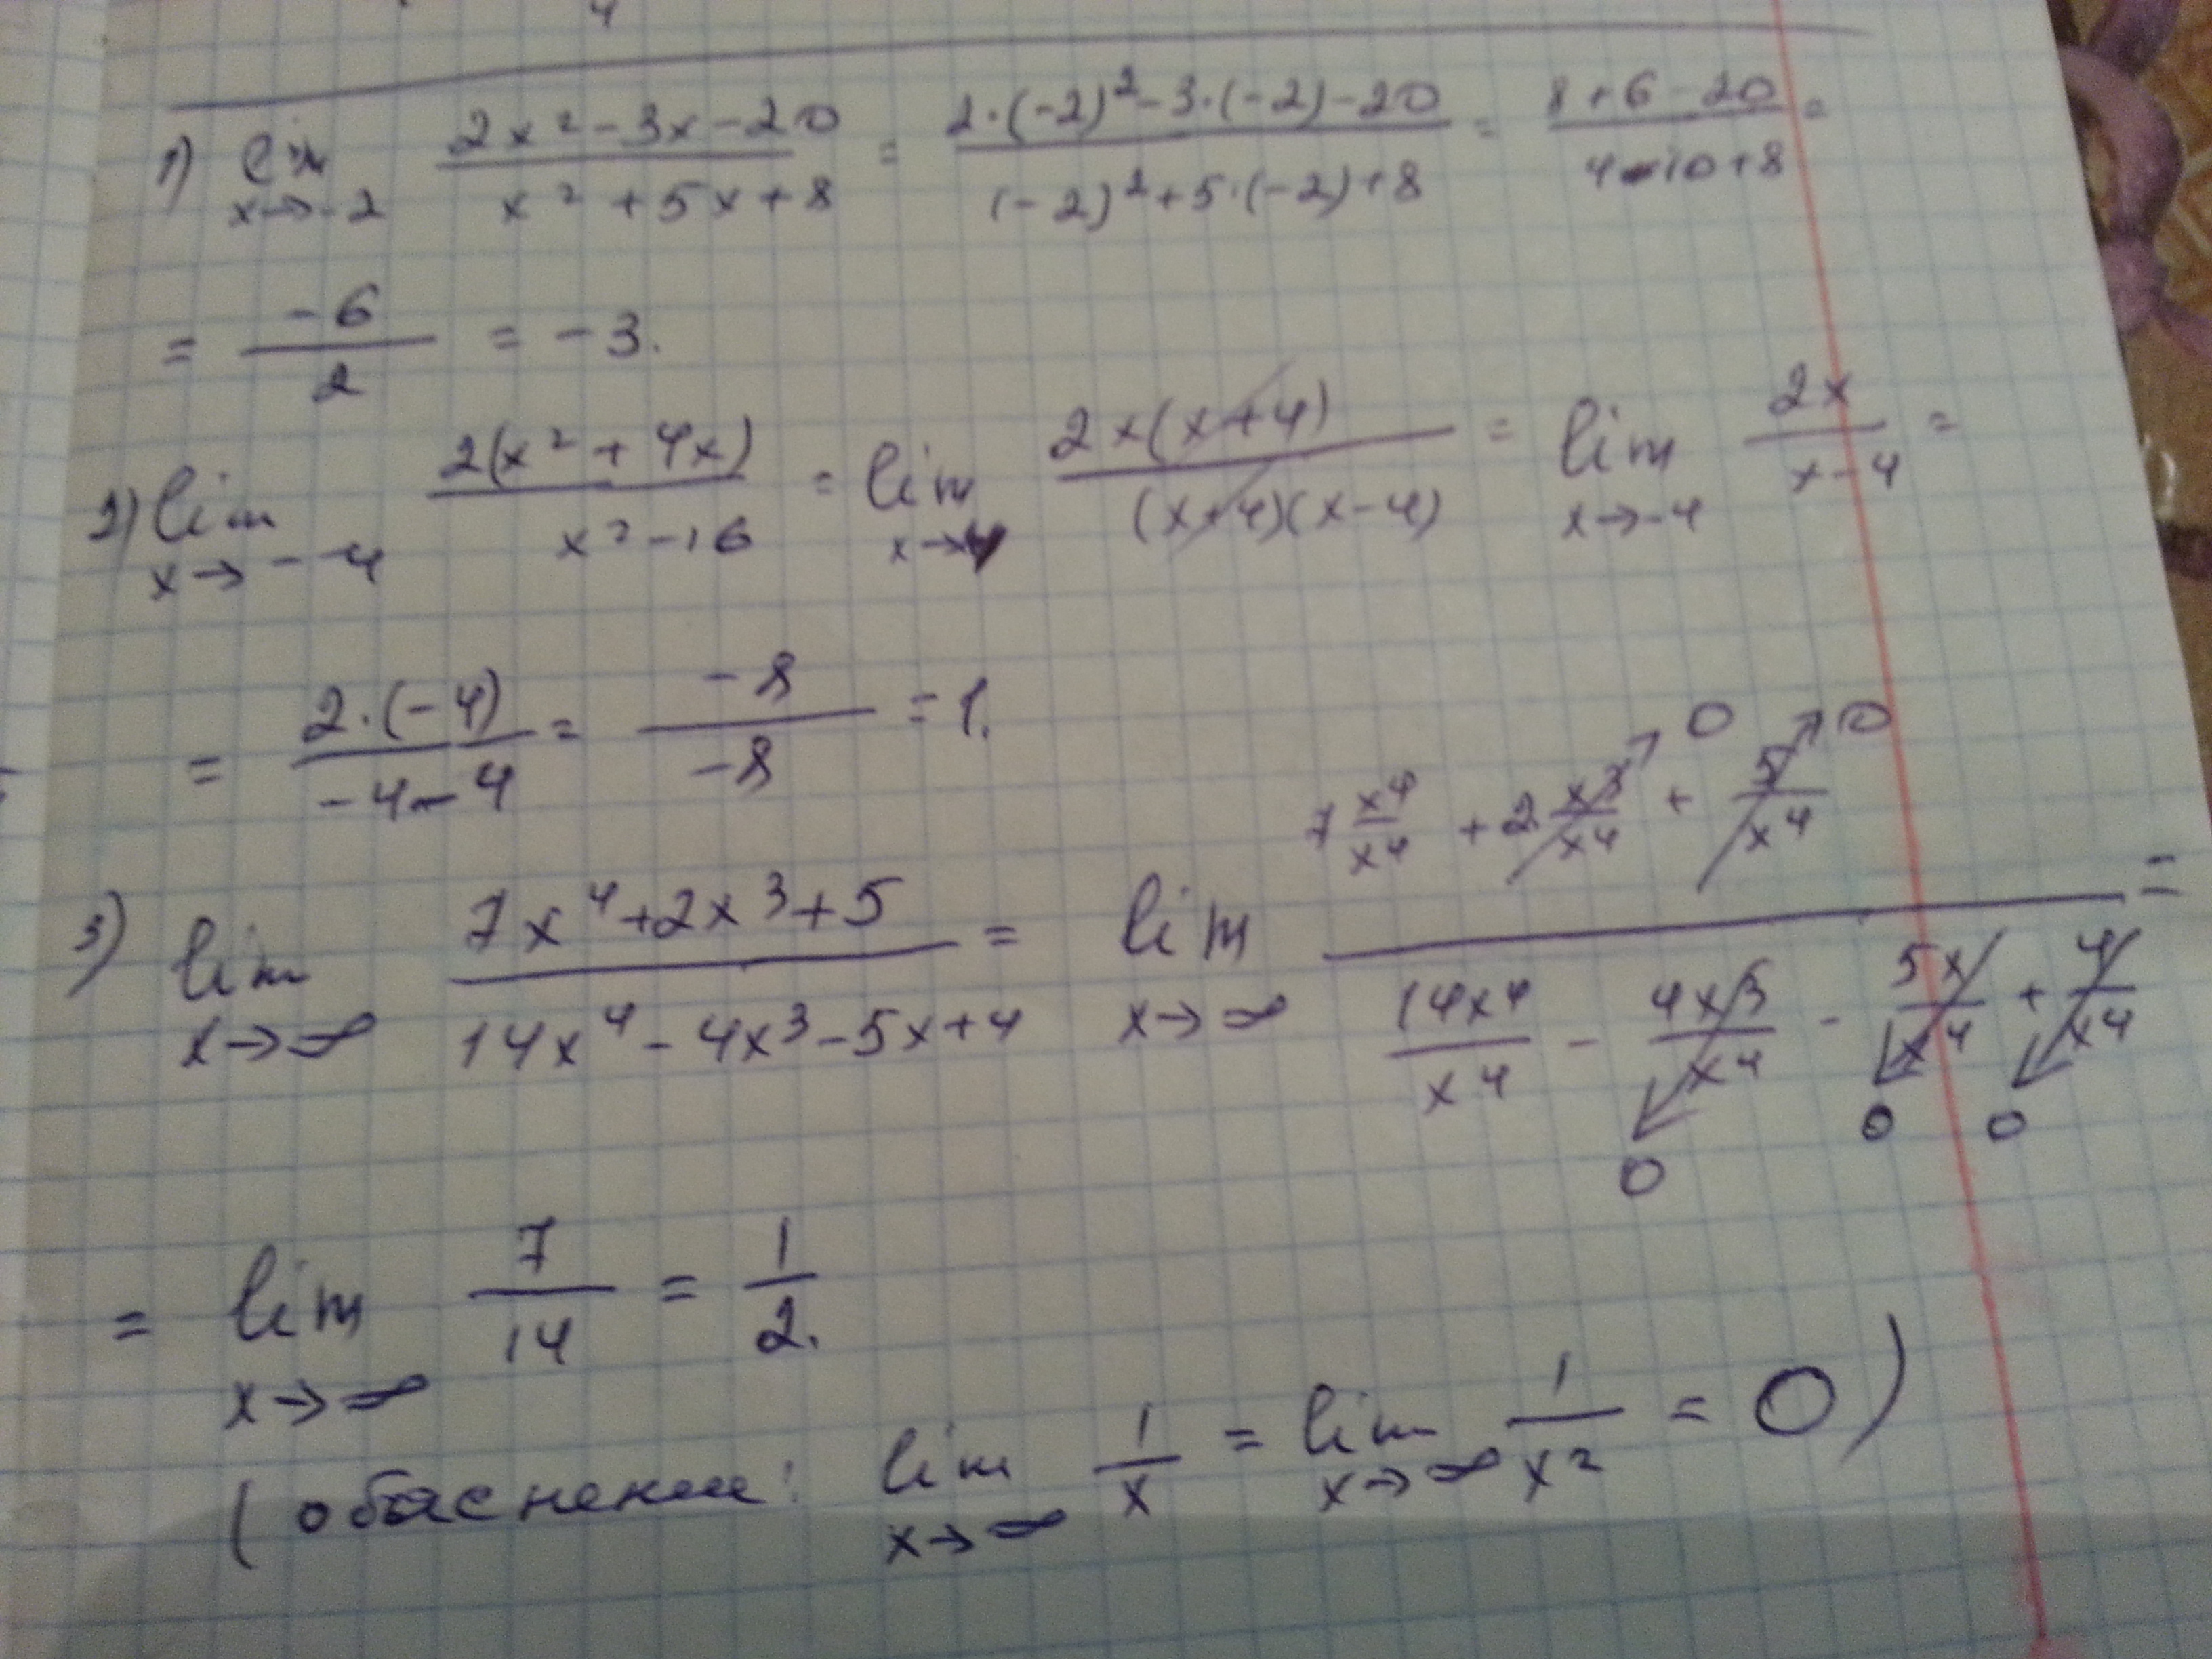 1) lim x→-2 (2x² - 3x - 20)/(x² + 5x + 8) = (2·(-2)² - 3·(-2) - 20)/((-2)² + 5·(-2) + 8) = (8 + 6 - 20)/(4 - 10 + 8) =
= -6/2 = -3.
2) lim x→-4 2(x² + 4x)/(x² - 16) = lim x→4 2x(x+4)/((x+4)(x-4)) = lim x→-4 2x/(x-4) =
= 2·(-4)/(-4-4) = -8/-8 = 1.
3) lim x→∞ (7x⁴ + 2x³ + 5)/(14x⁴ - 4x³ - 5x + 4) = lim x→∞ (7 x⁴/x⁴ + 2 x³/x⁴ →0 + 5/x⁴ →0)/(14x⁴/x⁴ - 4x³/x⁴ →0 - 5x/x⁴ →0 + 4/x⁴ →0) =
= lim x→∞ 7/14 = 1/2.
(обяснение: lim x→∞ 1/x = lim x→∞ 1/x² = 0)